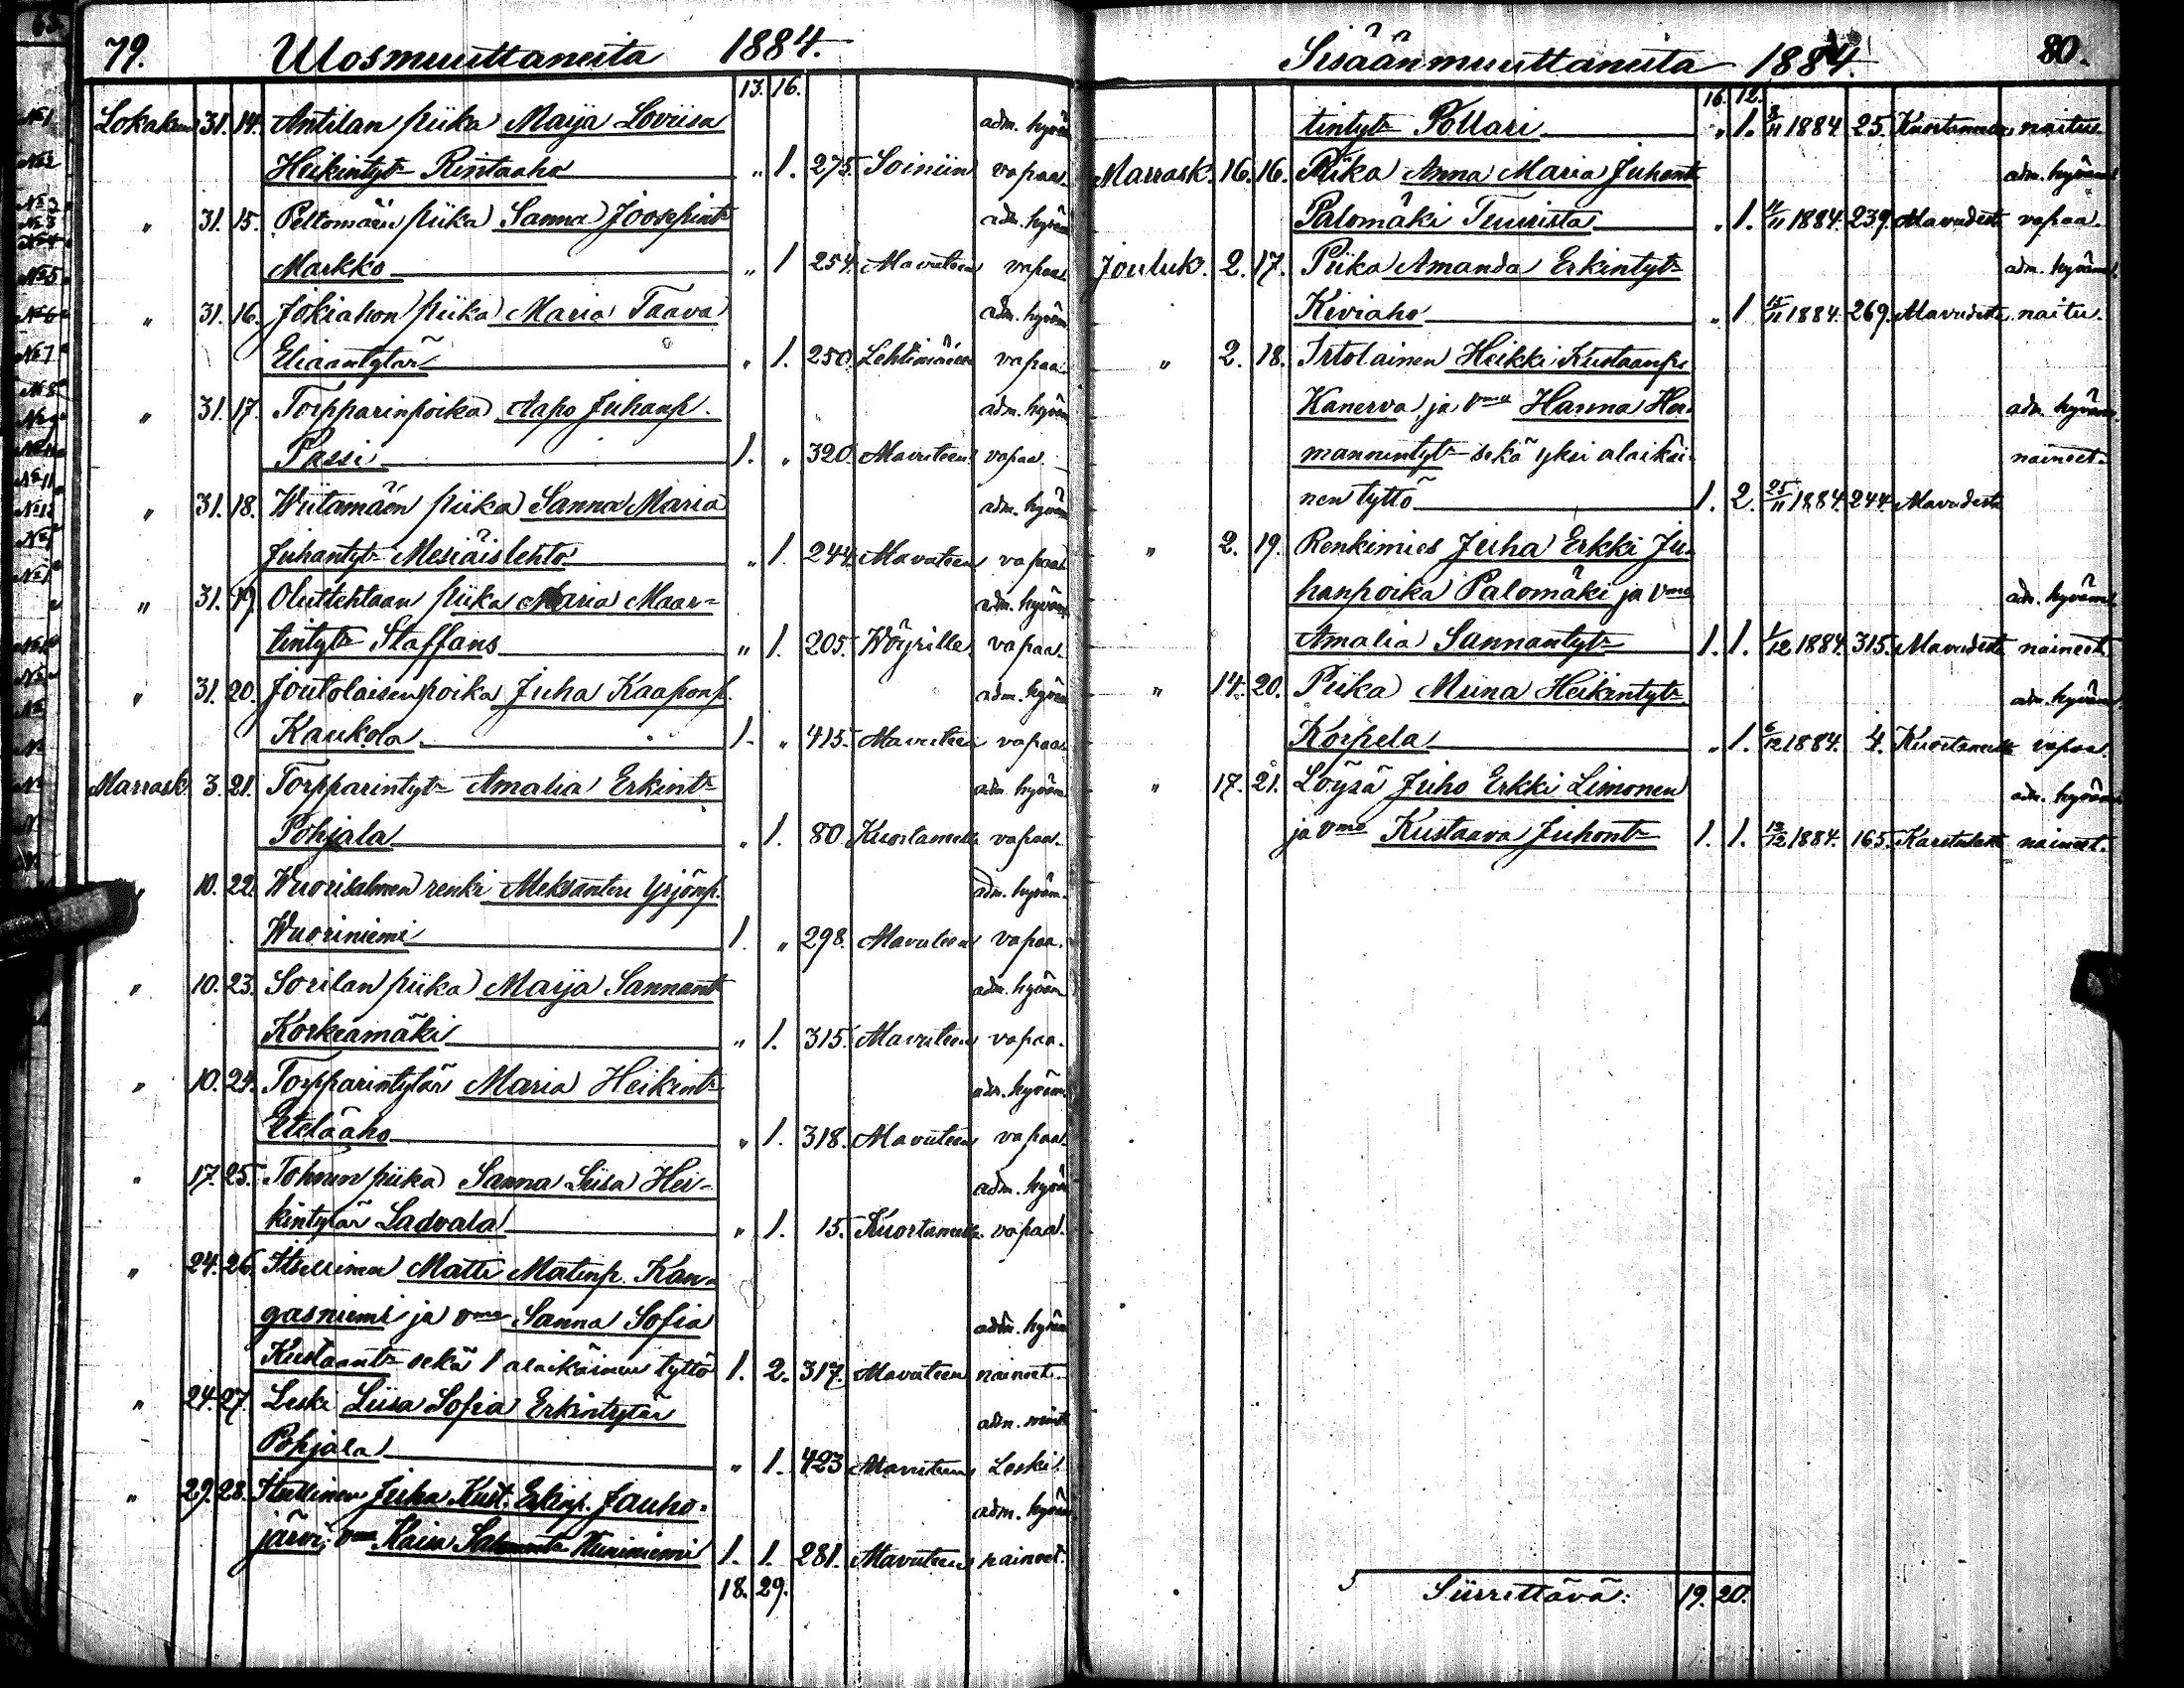 79. Ulosmuuttaneita 1884.
13. 16.
Lokakuu 31. 14. Antilan piika Maija Loviisa adm. hyväm
Heikintytr Rintaaho " 1. 275. Soiniin vapaa.
" 31. 15. Peltomäen piika Sanna Joosepint adm. hyväm
Markko " 1 254. Alavuteen vapaa.
" 31. 16. Jokiahon piika Maria Taava adm. hyväm
Eliaantytär " 1. 250. Lehtimäelle vapaa
" 31. 17. Torpparinpoika Aapo Juhanp. adm. hyväm
Passi 1. " 320. Alavuteen vapaa.
" 31. 18. Wiitamäen piika Sanna Maria adm. hyväm
Juhantytr Mesiäislehto " 1. 244. Alavuteen vapaa
" 31. 19. Oluttehtaan piika Maria Maar= adm. hyväm
tintytr Staffans " 1. 205. Wöyrille. vapaa.
" 31. 20. Joutolaisenpoika Juha Kaaponp. adm. hyväm
Kaukola 1. " 415. Alavuteen vapaa
Marrask. 3. 21. Torpparintytr Amalia Erkintr adm. hyväm
Pohjala " 1. 80. Kuortaneelle vapaa.
" 10. 22. Wuorisalmen renki Aleksanteri Yrjönp. adm. hyväm.
Wuoriniemi 1. " 298. Alavuteen vapaa.
" 10. 23. Sorilan piika Maija Sannant adm. hyväm
Korkeamäki " 1. 315. Alavuteen vapaa.
" 10. 24. Torpparintytär Maria Heikintr adm. hyväm.
Eteläaho " 1. 318. Alavuteen vapaa.
" 17. 25. piika Sanna Liisa Hei- adm. hyväm
kintytär Ladvala " 1. 15. Kuortaneelle. vapaa.
" 24. 26. Itsellinen Matti Matinp. Kan=
gasniemi ja vmo Sanna Sofia adm. hyväm
Kustaantr sekä 1 alaikäinen tyttö 1. 2. 317. Alavuteen naineet.
" 24. 27. Leski Liisa Sofia Erkintytär adm.
Pohjala " 1. 423 Alavuteen Leski.
" 29. 28. Itsellinen Juha Kust. Erkinp. Jauho= adm. hyväm
järvi, vmo Kaisa 1. 1. 281. Alavuteen naineet.
18. 29.
Sisäänmuuttaneita 1884. 80.
16. 12.
tintytr Pollari " 1. 8/11 1884 25. Kuortaneelta naitu.
Marrask. 16. 16. Piika Anna Maria Juhant adm. hyväm
Palomäki Tuurista " 1. 11/11 1884. 239. Alavudesta vapaa.
Jouluk. 2. 17. Piika Amanda Erkintytr adm. hyväm.
Kiviaho " 1 15/11 1884. 269. Alavudesta naitu.
" 2. 18. Irtolainen Heikki Kustaanp.
Kanerva, ja vmo Hanna Her- adm. hyväm.
mannintytr sekä yksi alaikäi- naineet.
nen tyttö 1. 2. 25/11 1884. 244. Alavudesta
" 2. 19. Renkimies Juha Erkki Ju-
hanpoika Palomäki ja vmo adm. hyväm.
Amalia Sannantytr 1. 1. 1/12 1884. 315. Alavudesta naineet.
" 14. 20. Piika Miina Heikintytr adm. hyväm
Korpela " 1. 6/12 1884. 4. Kuortaneelta vapaa.
" 17. 21. Löysä Juho Erkki Limonen adm. hyväm
ja vmo Kustaava Juhontr 1. 1. 12/12 1884. 165. Karstulasta naineet.
Siirrettävä: 19. 20.